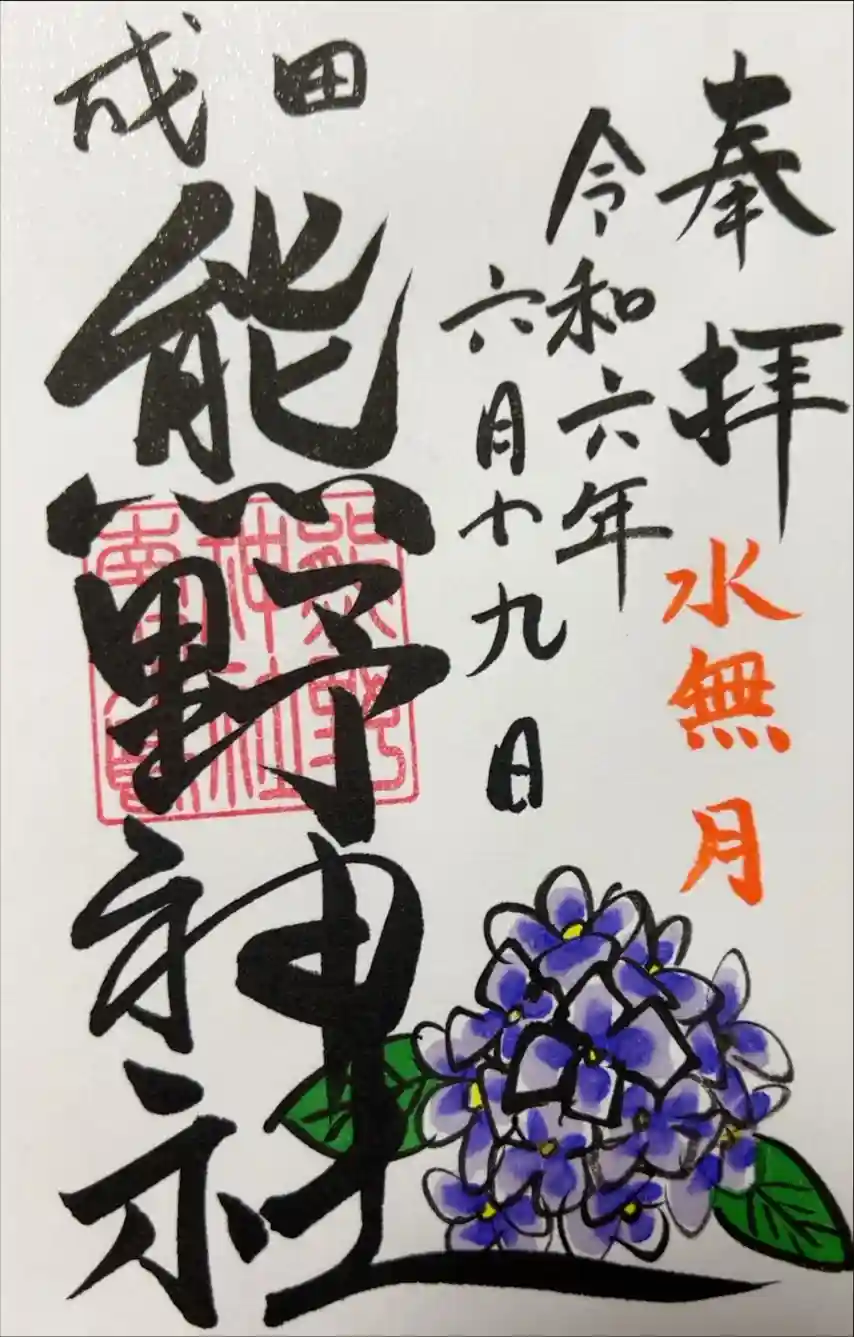 奉拝
水無月
令和六年
六月十九日
成田
熊野神社
熊野
神社